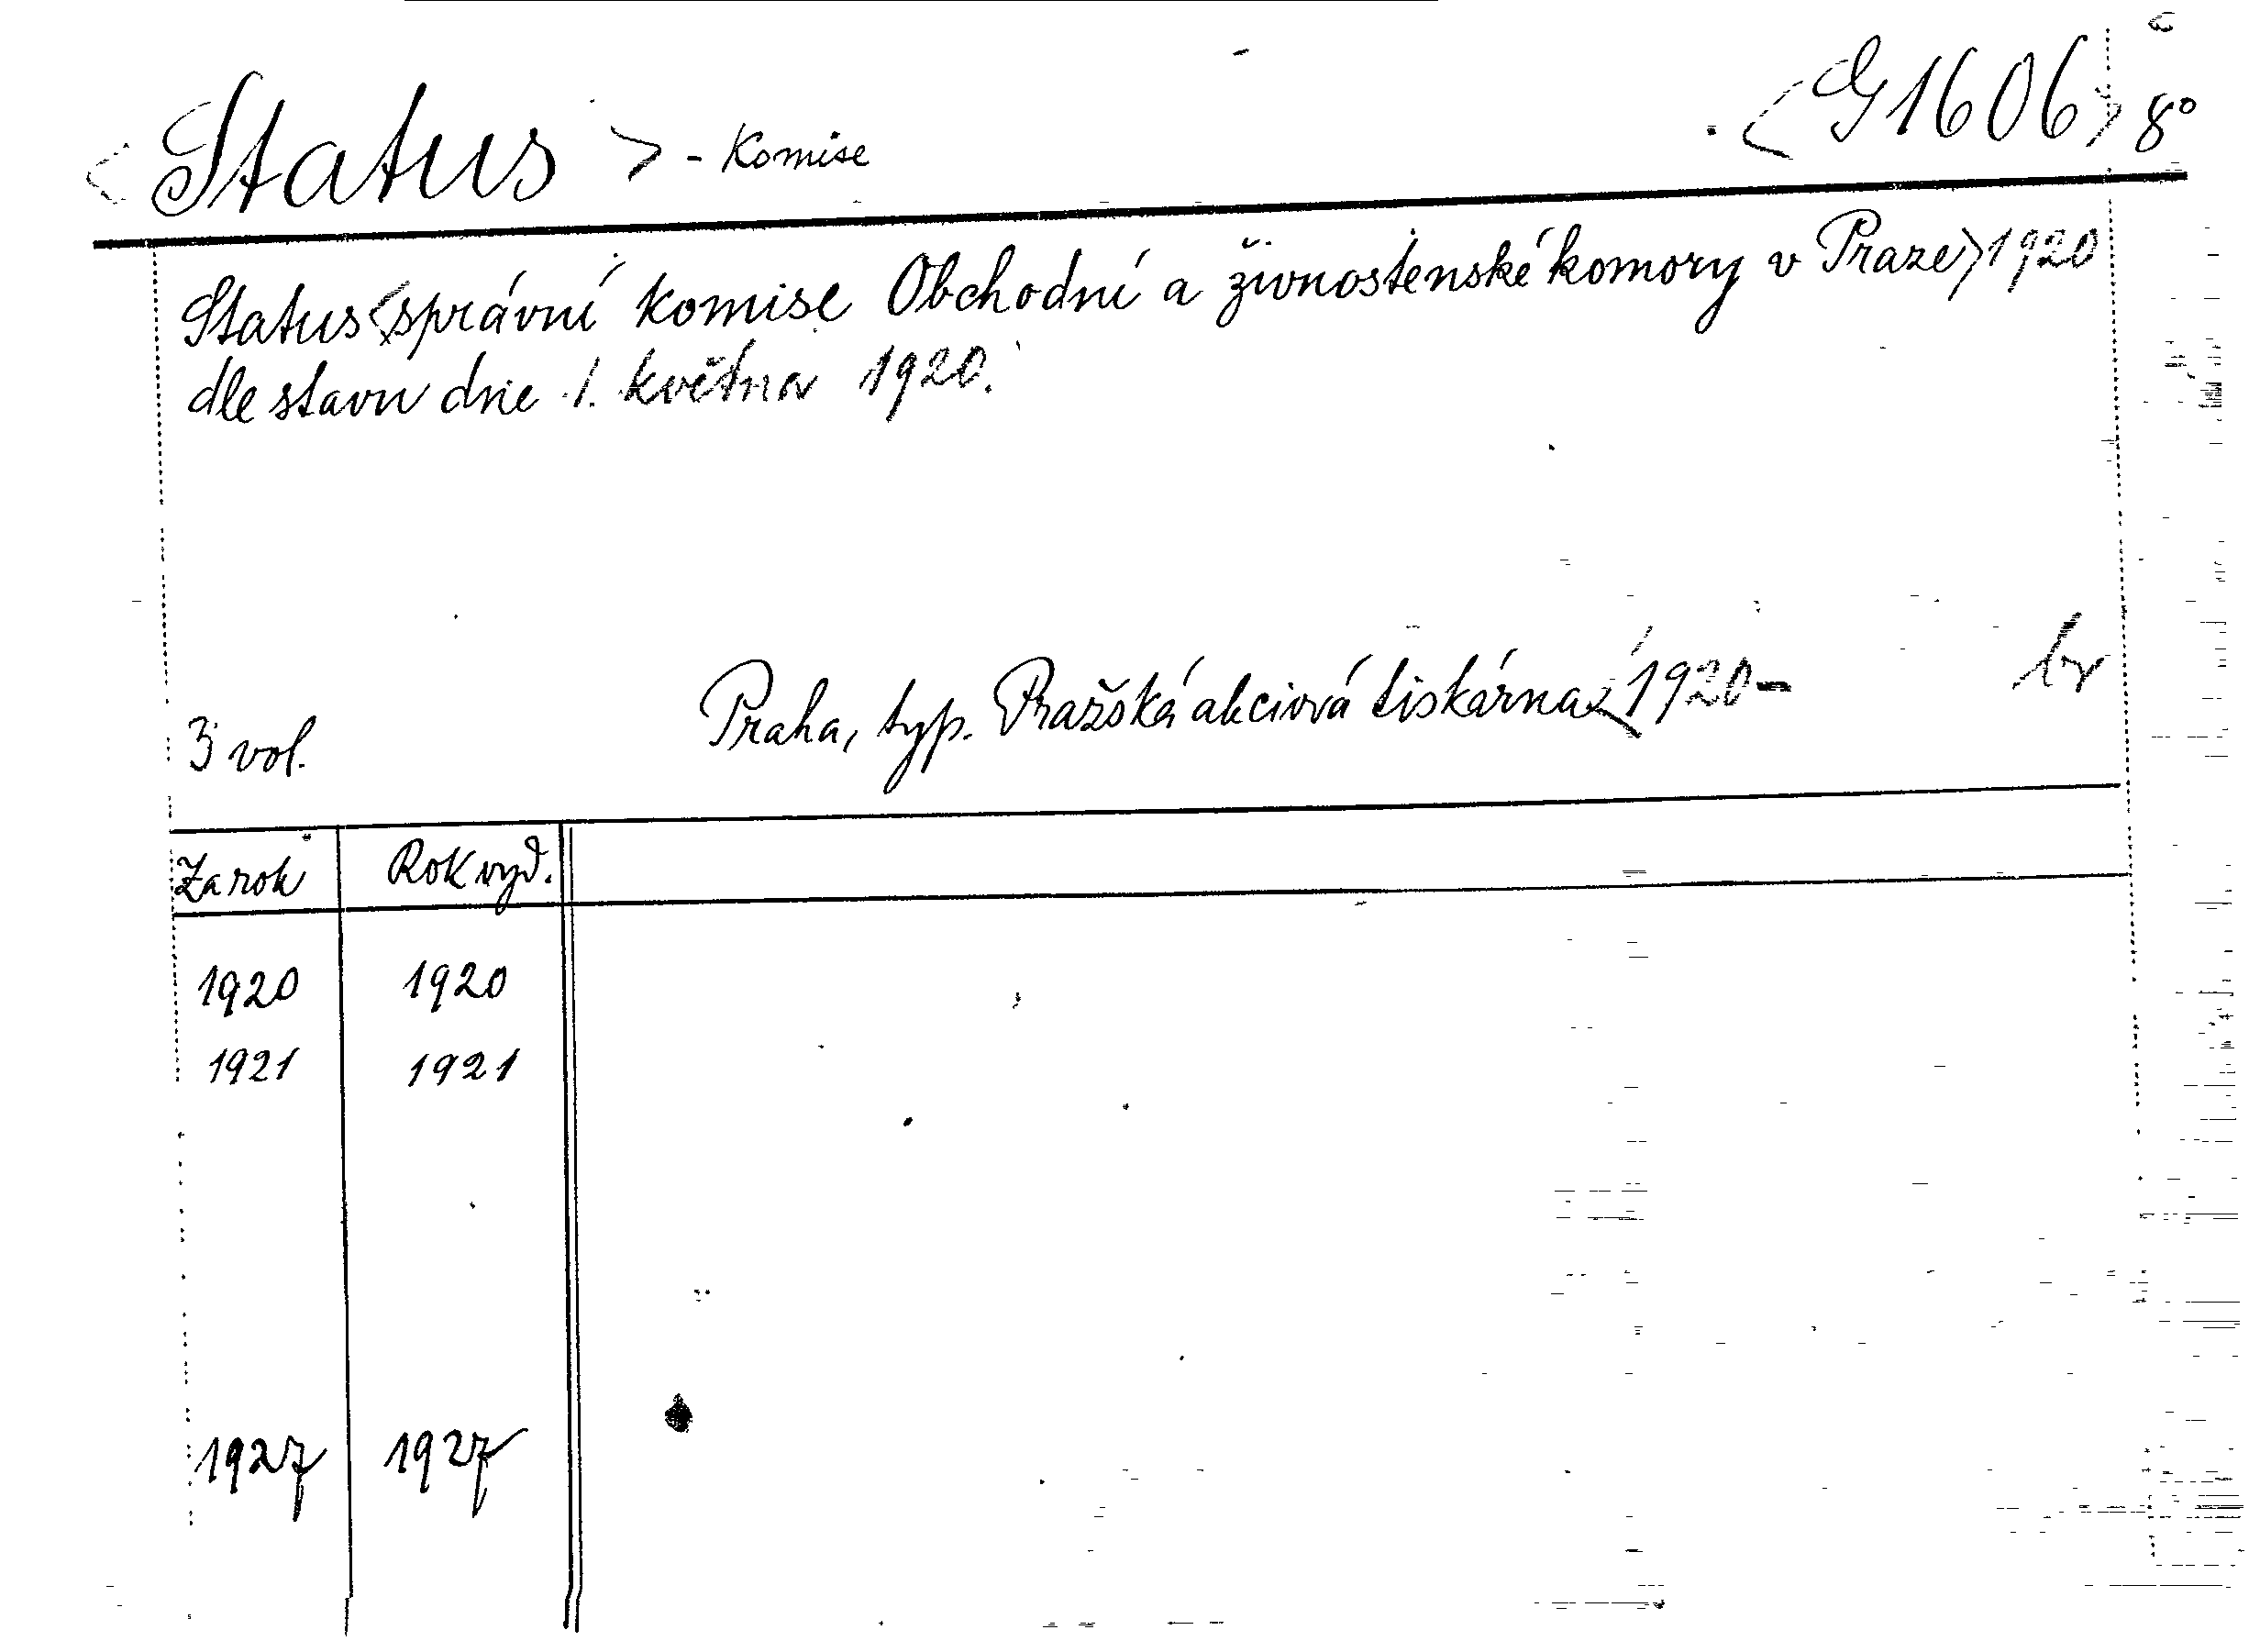 <Status> - Komise <G 1606> 8°
Status <správní komise Obchodní a živnostenské komory v Praze> 1920
dle stavu dne 1. května 1920.
3 vol. Praha, typ. Pražská akciová tiskárna <1920-
Za rok Rok vyd.
1920 1920
1921 1921
1927 1927